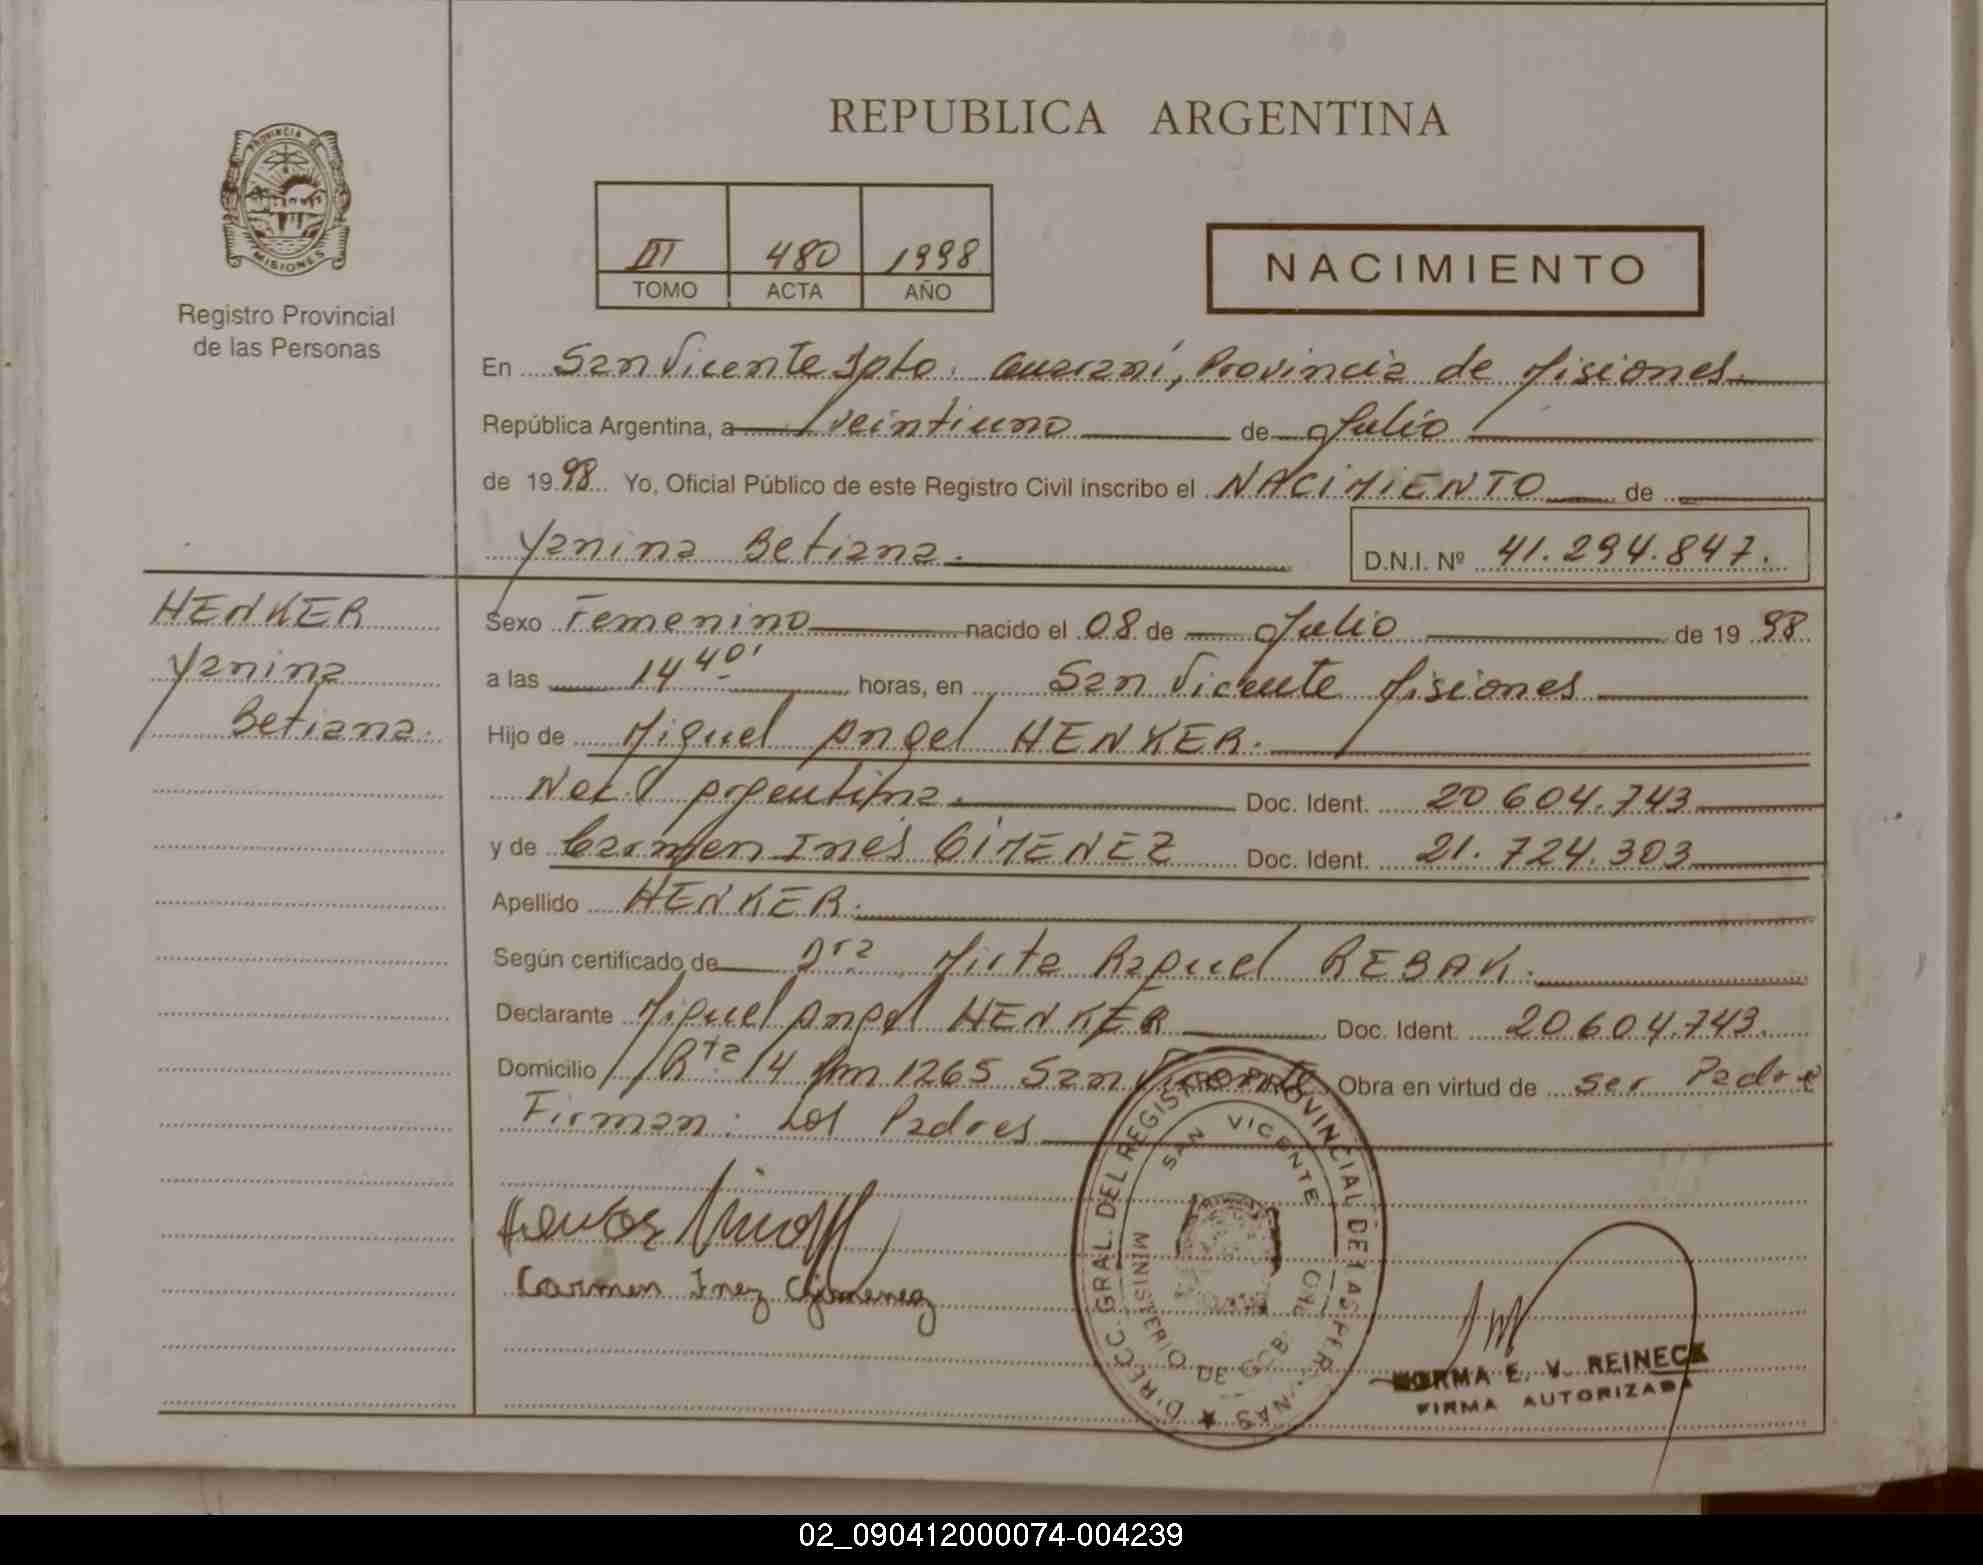 REPUBLICA ARGENTINA
PROVINCIA DE
MISIONES
Registro Provincial
de las Personas
III 480 1998
TOMO ACTA AÑO
NACIMIENTO
En San Vicente Dpto. Guaraní, Provincia de Misiones.
República Argentina, a veintiuno de Julio
de 1998 Yo, Oficial Público de este Registro Civil inscribo el NACIMIENTO de
Yanina Betiana. D.N.I. Nº 41.294.847.
HENKER
Yanina
Betiana.
Sexo Femenino nacido el 08 de Julio de 1998
a las 14 40' horas, en San Vicente Misiones
Hijo de Miguel Angel HENKER.
Nac. Argentina. Doc. Ident. 20 604.743
y de Carmen Inés GIMENEZ Doc. Ident. 21.724.303
Apellido HENKER.
Según certificado de Dra Mirta Raquel REBAK.
Declarante Miguel Angel HENKER Doc. Ident. 20.604.743.
Domicilio Rta 14 Km 1265 San Vicente Obra en virtud de ser Padre
Firman: Los Padres
Carmen Inez Gimenez
DIRECC. GRAL. DEL REGISTRO PROVINCIAL DE LAS PERSONAS
SAN VICENTE
MINISTERIO DE GOB.
NORMA E. V. REINECK
FIRMA AUTORIZADA
02_090412000074-004239